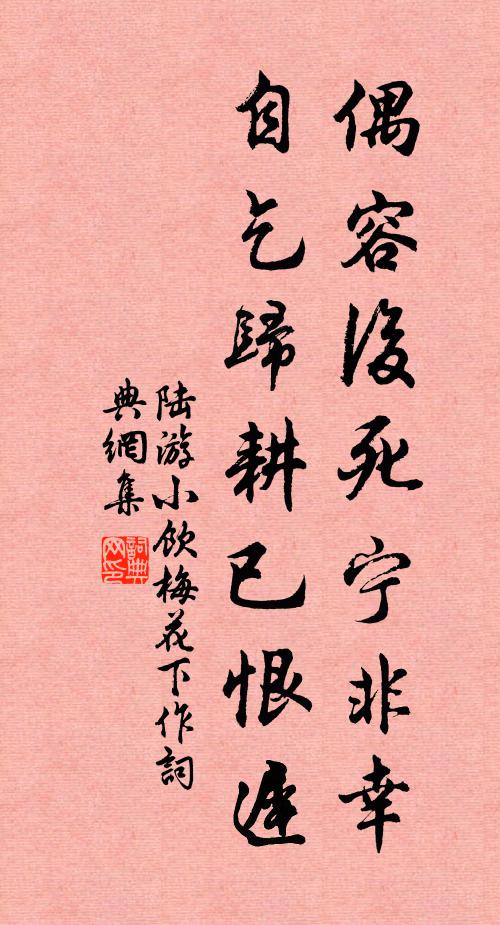 偶容後死宁非幸
自乞歸耕已恨遲
陆游小饮梅花下作詞
典網集
詞典网印